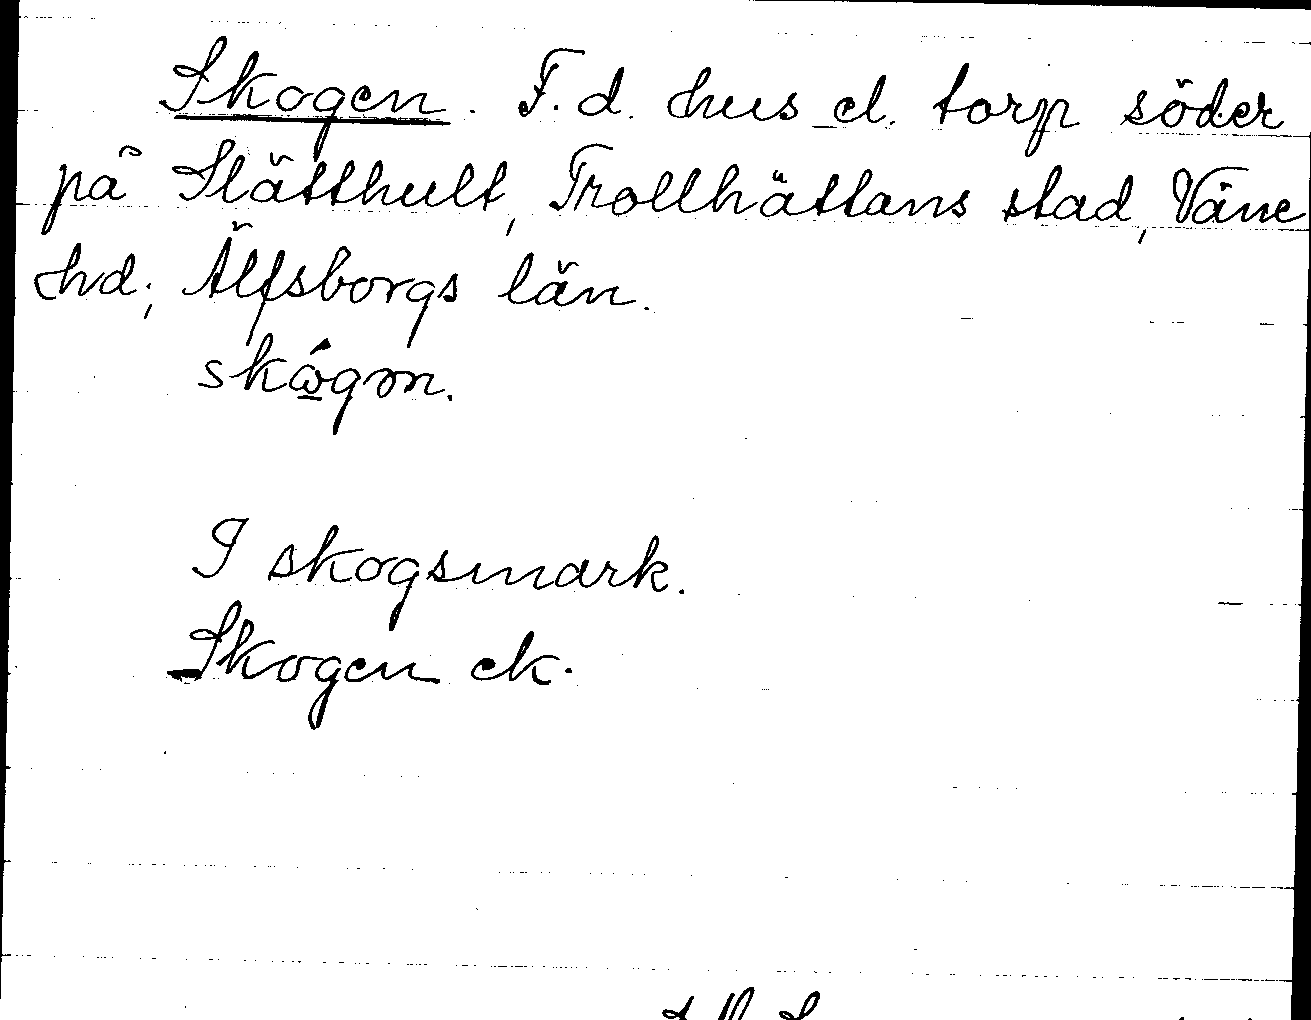 Skogen. F.d. hus el. torp söder
på Slätthult, Trollhättans stad, Väne
hd; Älfsborgs län.
skógən.
I skogsmark.
Skogen ek.